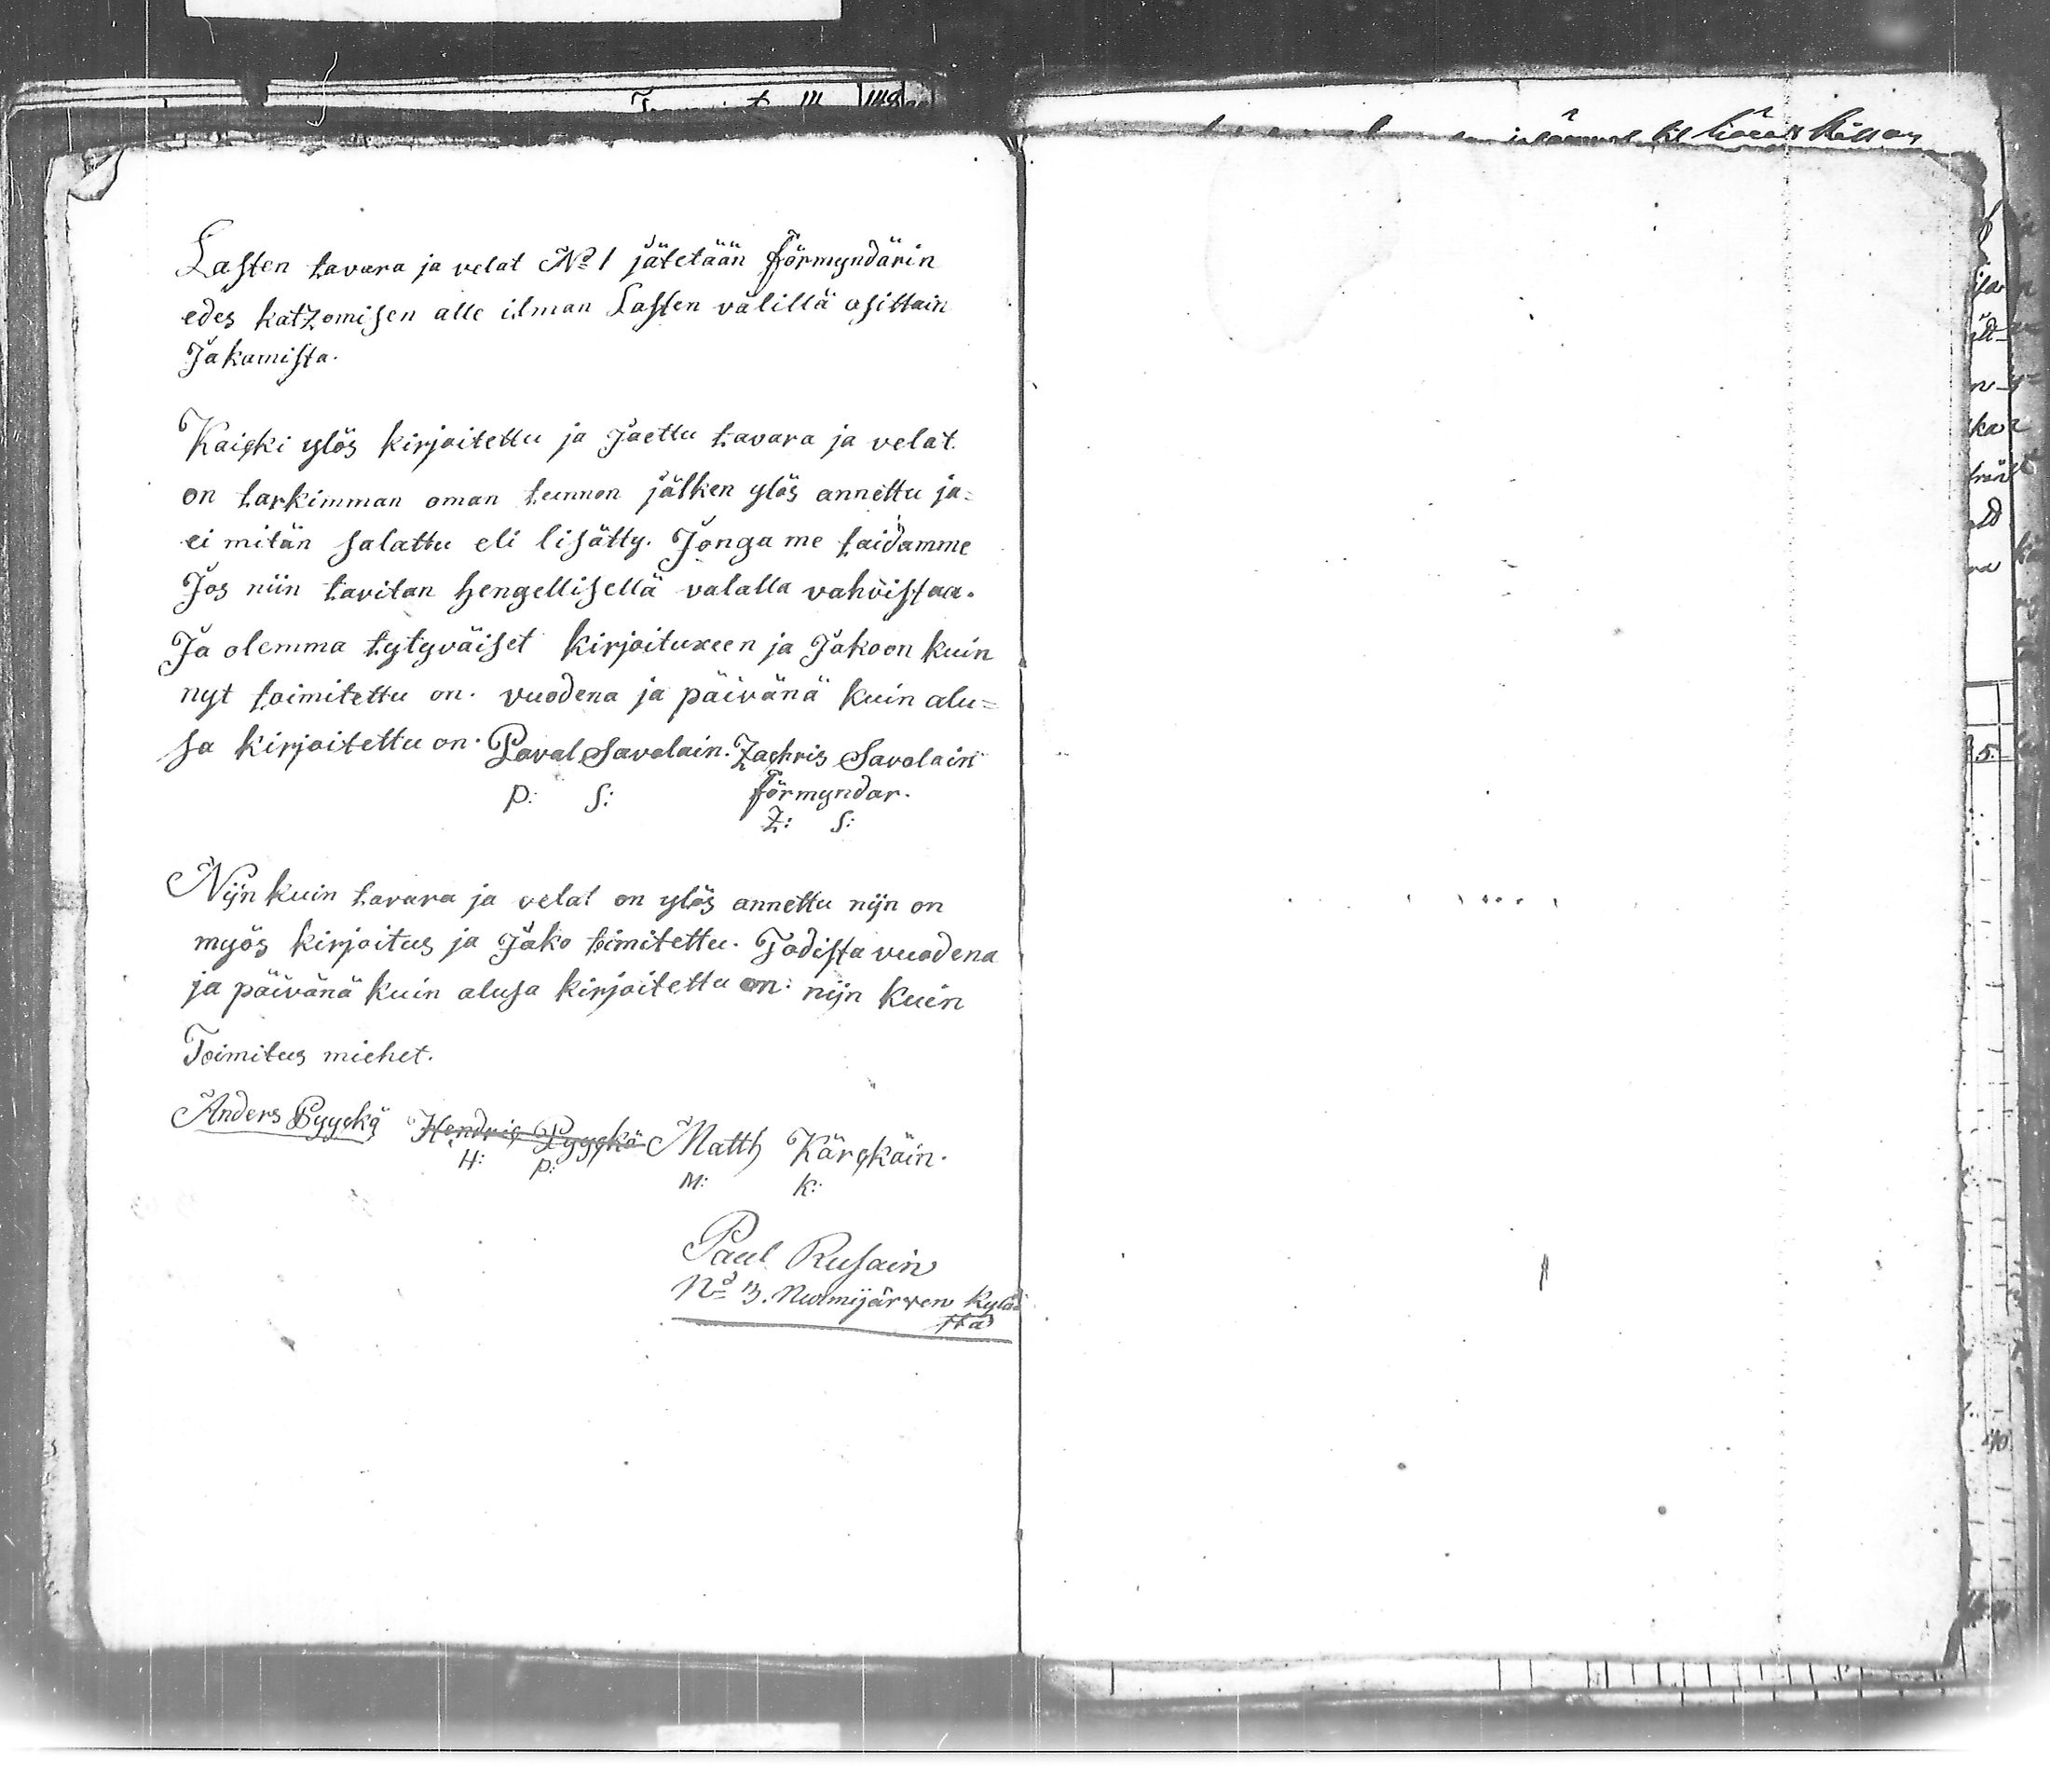 Lasten tavara ja velat No 1 jätetään förmyndärin
edes katzomisen alle ilman Lasten välillä osittain
Jakamista.
Kaicki ylös kirjoitettu ja Jaettu tavara ja velat
on tarkimman oman tunnon jälken ylös annettu ja=
ei mitän salattu eli lisätty. Jonga me taidamme
Jos niin tavitan hengellisellä valalla vahvistaa.
Ja olemma tytyväiset kirjoituxeen ja Jakoon kuin
nyt toimitettu on. vuodena ja päivänä kuin alu=
sa kirjoitettu on. Paval Savolain. Zachris Savolain
P: S: förmyndar.
Z: S:
Nijn kuin tavara ja velat on ylös annettu nijn on
myös kirjoitus ja Jako toimitettu. Todista vuodena
ja päivänä kuin alusa kirjoitettu on: nijn kuin
Toimitus miehet.
Anders Pyyckö Hendric Pyyckö Matth Kärckäin.
H: P: M: K:
Paul Rusain
No 3. Nurmijärven Kylä
stä